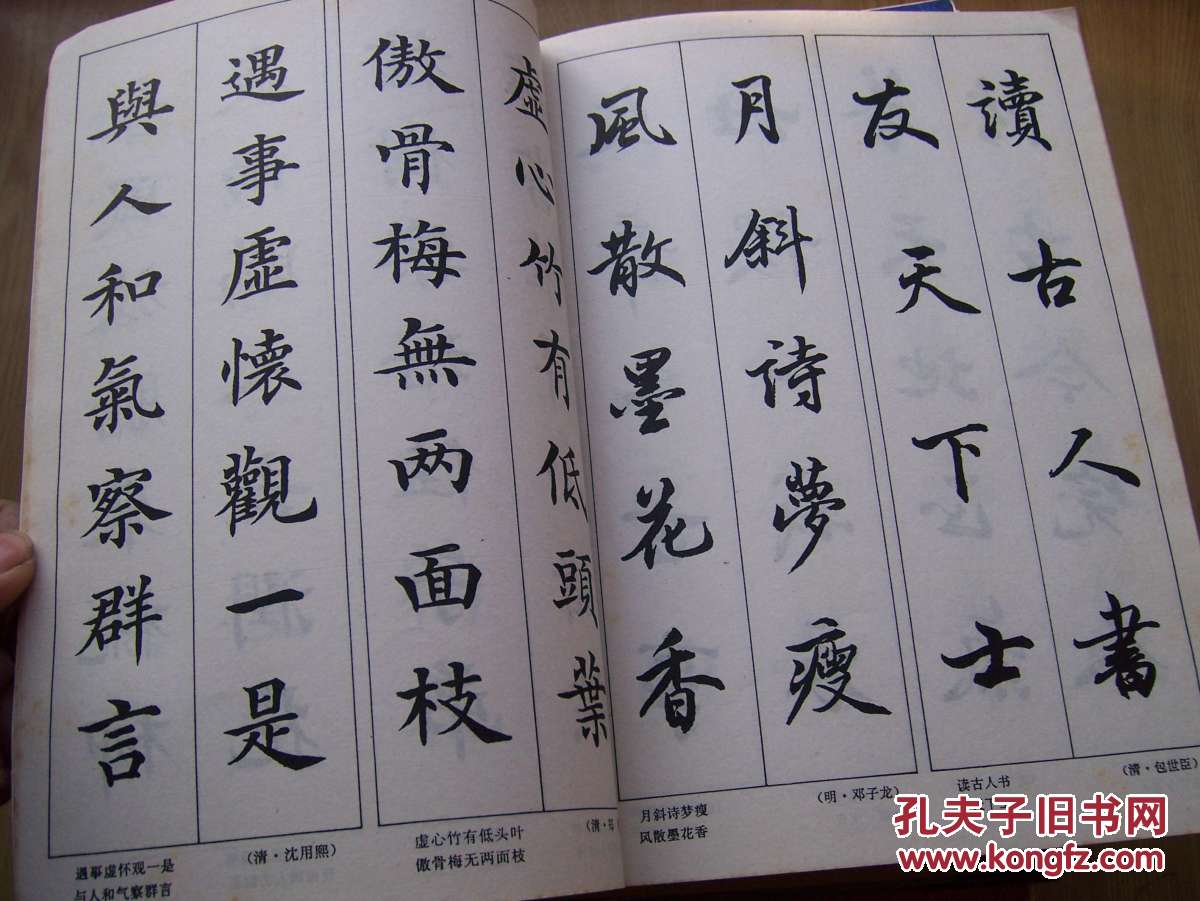 讀古人書
友天下士
读古人书
(清·包世臣)
月斜詩夢瘦
風散墨花香
月斜诗梦瘦
风散墨花香
(明·邓子龙)
虛心竹有低頭葉
傲骨梅無两面枝
虚心竹有低头叶
傲骨梅无两面枝
(清·
遇事虛懷觀一是
與人和氣察群言
遇事虚怀观一是
与人和气察群言
(清·沈用熙)
孔夫子旧书网
www.kongfz.com